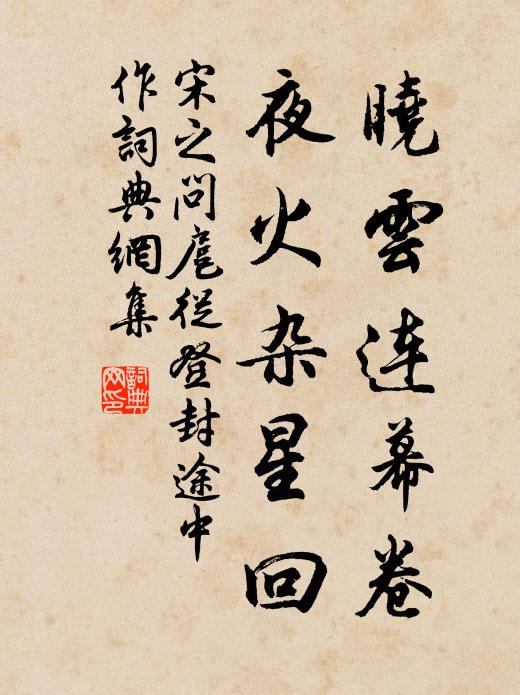 曉雲连幕卷
夜火杂星回
宋之问扈從登封途中
作詞典網集
詞典网印